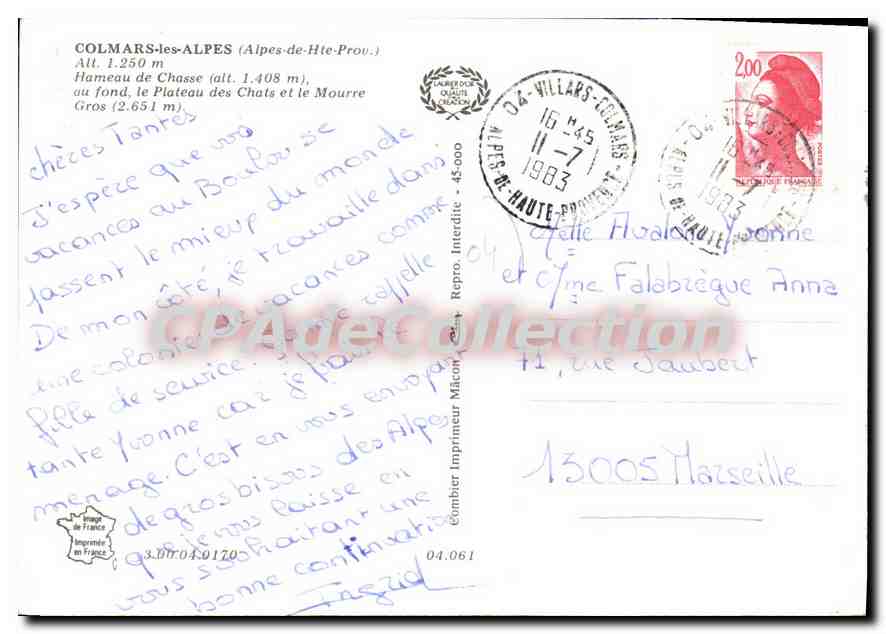 COLMARS-les-ALPES (Alpes-de-Hte-Prov.)
Alt. 1.250 m
Hameau de Chasse (alt. 1.408 m),
au fond, le Plateau des Chats et le Mourre
Gros (2.651 m).
LAURIER D'OR
DE LA
QUALITÉ
DE LA
CRÉATION
chères Tantes
J'espère que vos
vacances au Boulou se
passent le mieux du monde
De mon côté, je travaille dans
une colonie de vacances comme
fille de service. rappelle
tante Yvonne car je
menage. C'est en vous envoyant
de gros bisous des Alpes
que je vous laisse en
vous souhaitant une
bonne continuation
Ingrid
Image
de France
Imprimée
en France
3.00.04.0170
04.061
Combier Imprimeur Mâcon Repro. Interdite - 45-000
04-VILLARS-COLMARS
16H45
11-7
1983
ALPES-DE-HAUTE-PROVENCE
2,00
POSTES
REPUBLIQUE FRANÇAISE
04-VILLARS-
16H45
11-7
1983
ALPES-DE-HAUTE-
04
Melle Avalon Yvonne
et Mme Falabrègue Anna
71, rue Jaubert
13005 Marseille
CPAdeCollection